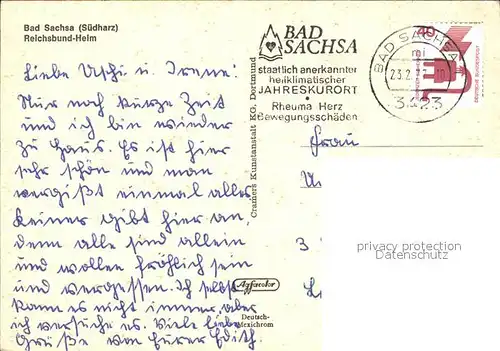 Bad Sachsa (Südharz)
Reichsbund-Heim
Liebe Uschi u. Irene!
Nur noch kurze Zeit
und ich bin wieder
zu Haus. Es ist hier
sehr schön und man
vergißt einmal alles.
Keiner gibt hier an,
denn alle sind allein
und wollen fröhlich sein
und vergessen. Ich selbst
kann es nicht immer, aber
ich versuche es. Viele liebe
Grüße von Eurer Edith.
Cramers Kunstanstalt KG, Dortmund
Agfacolor
BAD
SACHSA
staatlich anerkannter
heilklimatischer
JAHRESKURORT
Rheuma Herz
Bewegungsschäden
BAD SACHSA
23.2.
3423
40
Deutsche Bundespost
Frau
3
privacy protection
Datenschutz